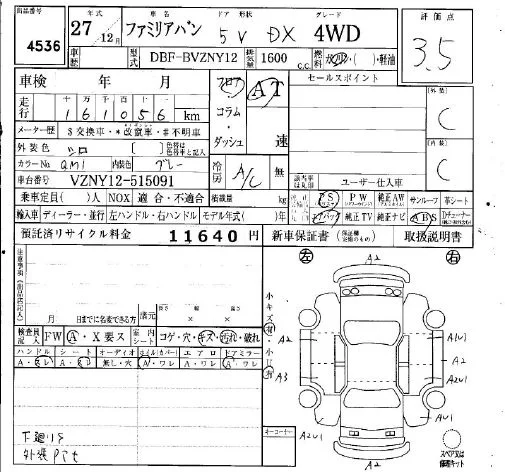 商品番号 年 車名 ドア 形状 グレード 評価点
4536 27年12月 ファミリアバン 5V DX 4WD 3.5
車歴 型式 DBF-BVZNY12 排気量 1600 c.c. 燃料 ・( )・軽油
車検 年 月 フロア AT セールスポイント 外装 C
走行 161056 km コラム 速
メーター歴 $交換車・*改竄車・#不明車 ダッシュ 内装 C
外装色 シロ 色替は色替車と記入
カラーNo QM1 内装色 グレー 冷房 A/C 無 該当車は○印 ユーザー仕入車
車台番号 VZNY12-515091
乗車定員( )人 NOX 適合・不適合 積載量 kg PS PW 純正AW サンルーフ 革シート
輸入車 ディーラー・並行 左ハンドル・右ハンドル モデル年式( )年 エアバック 純正TV 純正ナビ ABS
預託済リサイクル料金 11640円 新車保証書 取扱説明書
左 A2 右
月 日までに名変できる方 諸元 長さ 幅 高さ
小キズ 有・小U 有
検査員記入 FW A・X要ス 室内シート コゲ・穴・キズ・汚れ・破れ
ハンドル シート オーディオ エアロ ドアミラー
A・スレ 無し・穴 A・ワレ A・ワレ A・ワレ
A2 A1U1
A2
A3 A2U1
A2U1 A1U1
キーコーナー A2
下廻りS
外装Pキt
スペア又は修理キット